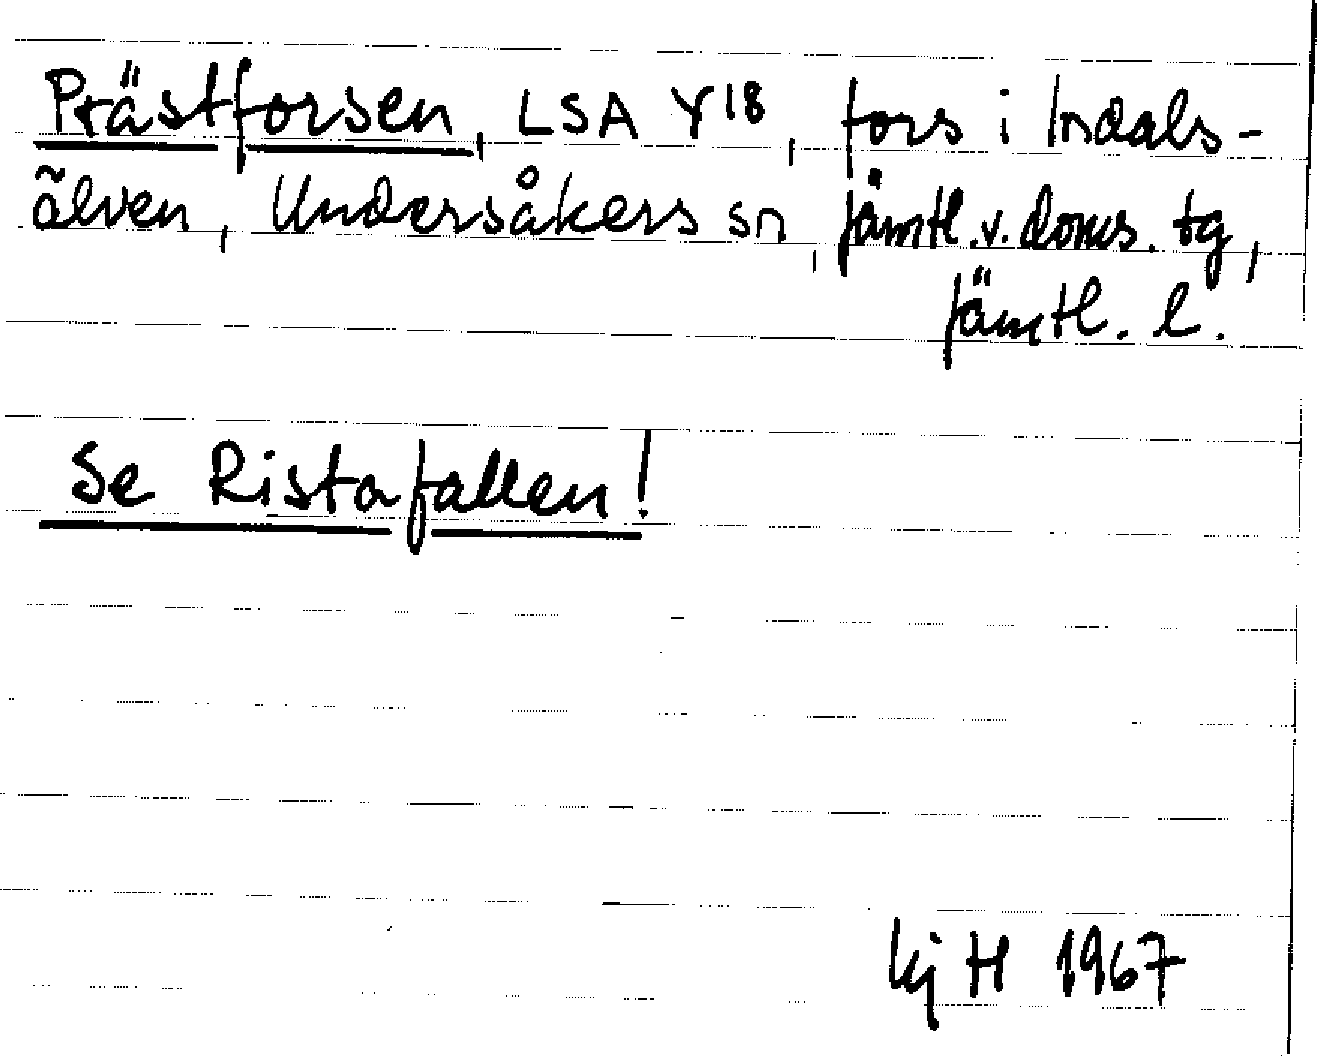 Prästforsen, LSA Y18, fors i Indals-
älven, Undersåkers sn, Jämtl. v. doms. tg,
Jämtl. l.
Se Ristafallen!
Kj H 1967